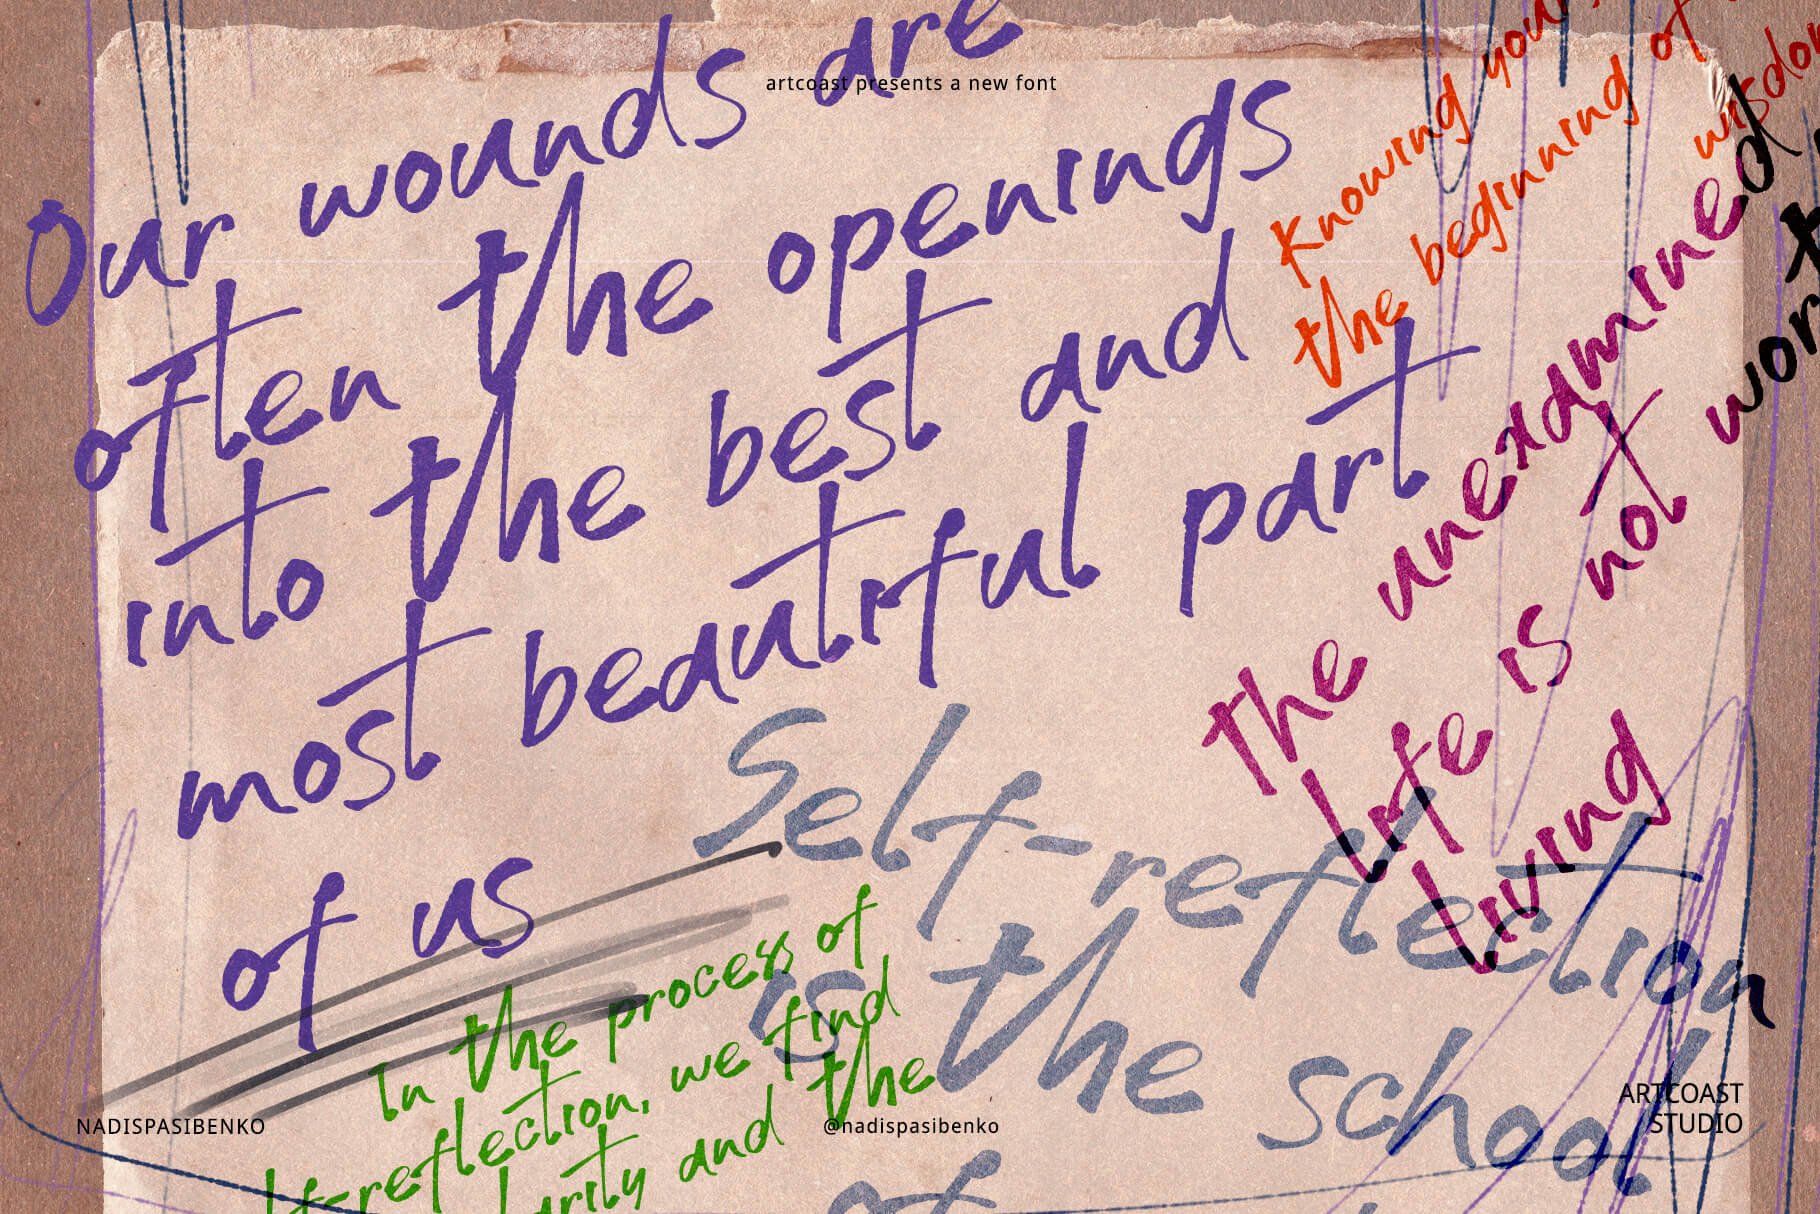 artcoast presents a new font
Our wounds are
often the openings
into the best and
most beautiful part
of us
Knowing
the beginning of
wisdom
The unexamined
life is not
living
Self-reflection
is the school
of
In the process of
lf-reflection, we find
larity and the
NADISPASIBENKO
@nadispasibenko
ARTCOAST
STUDIO